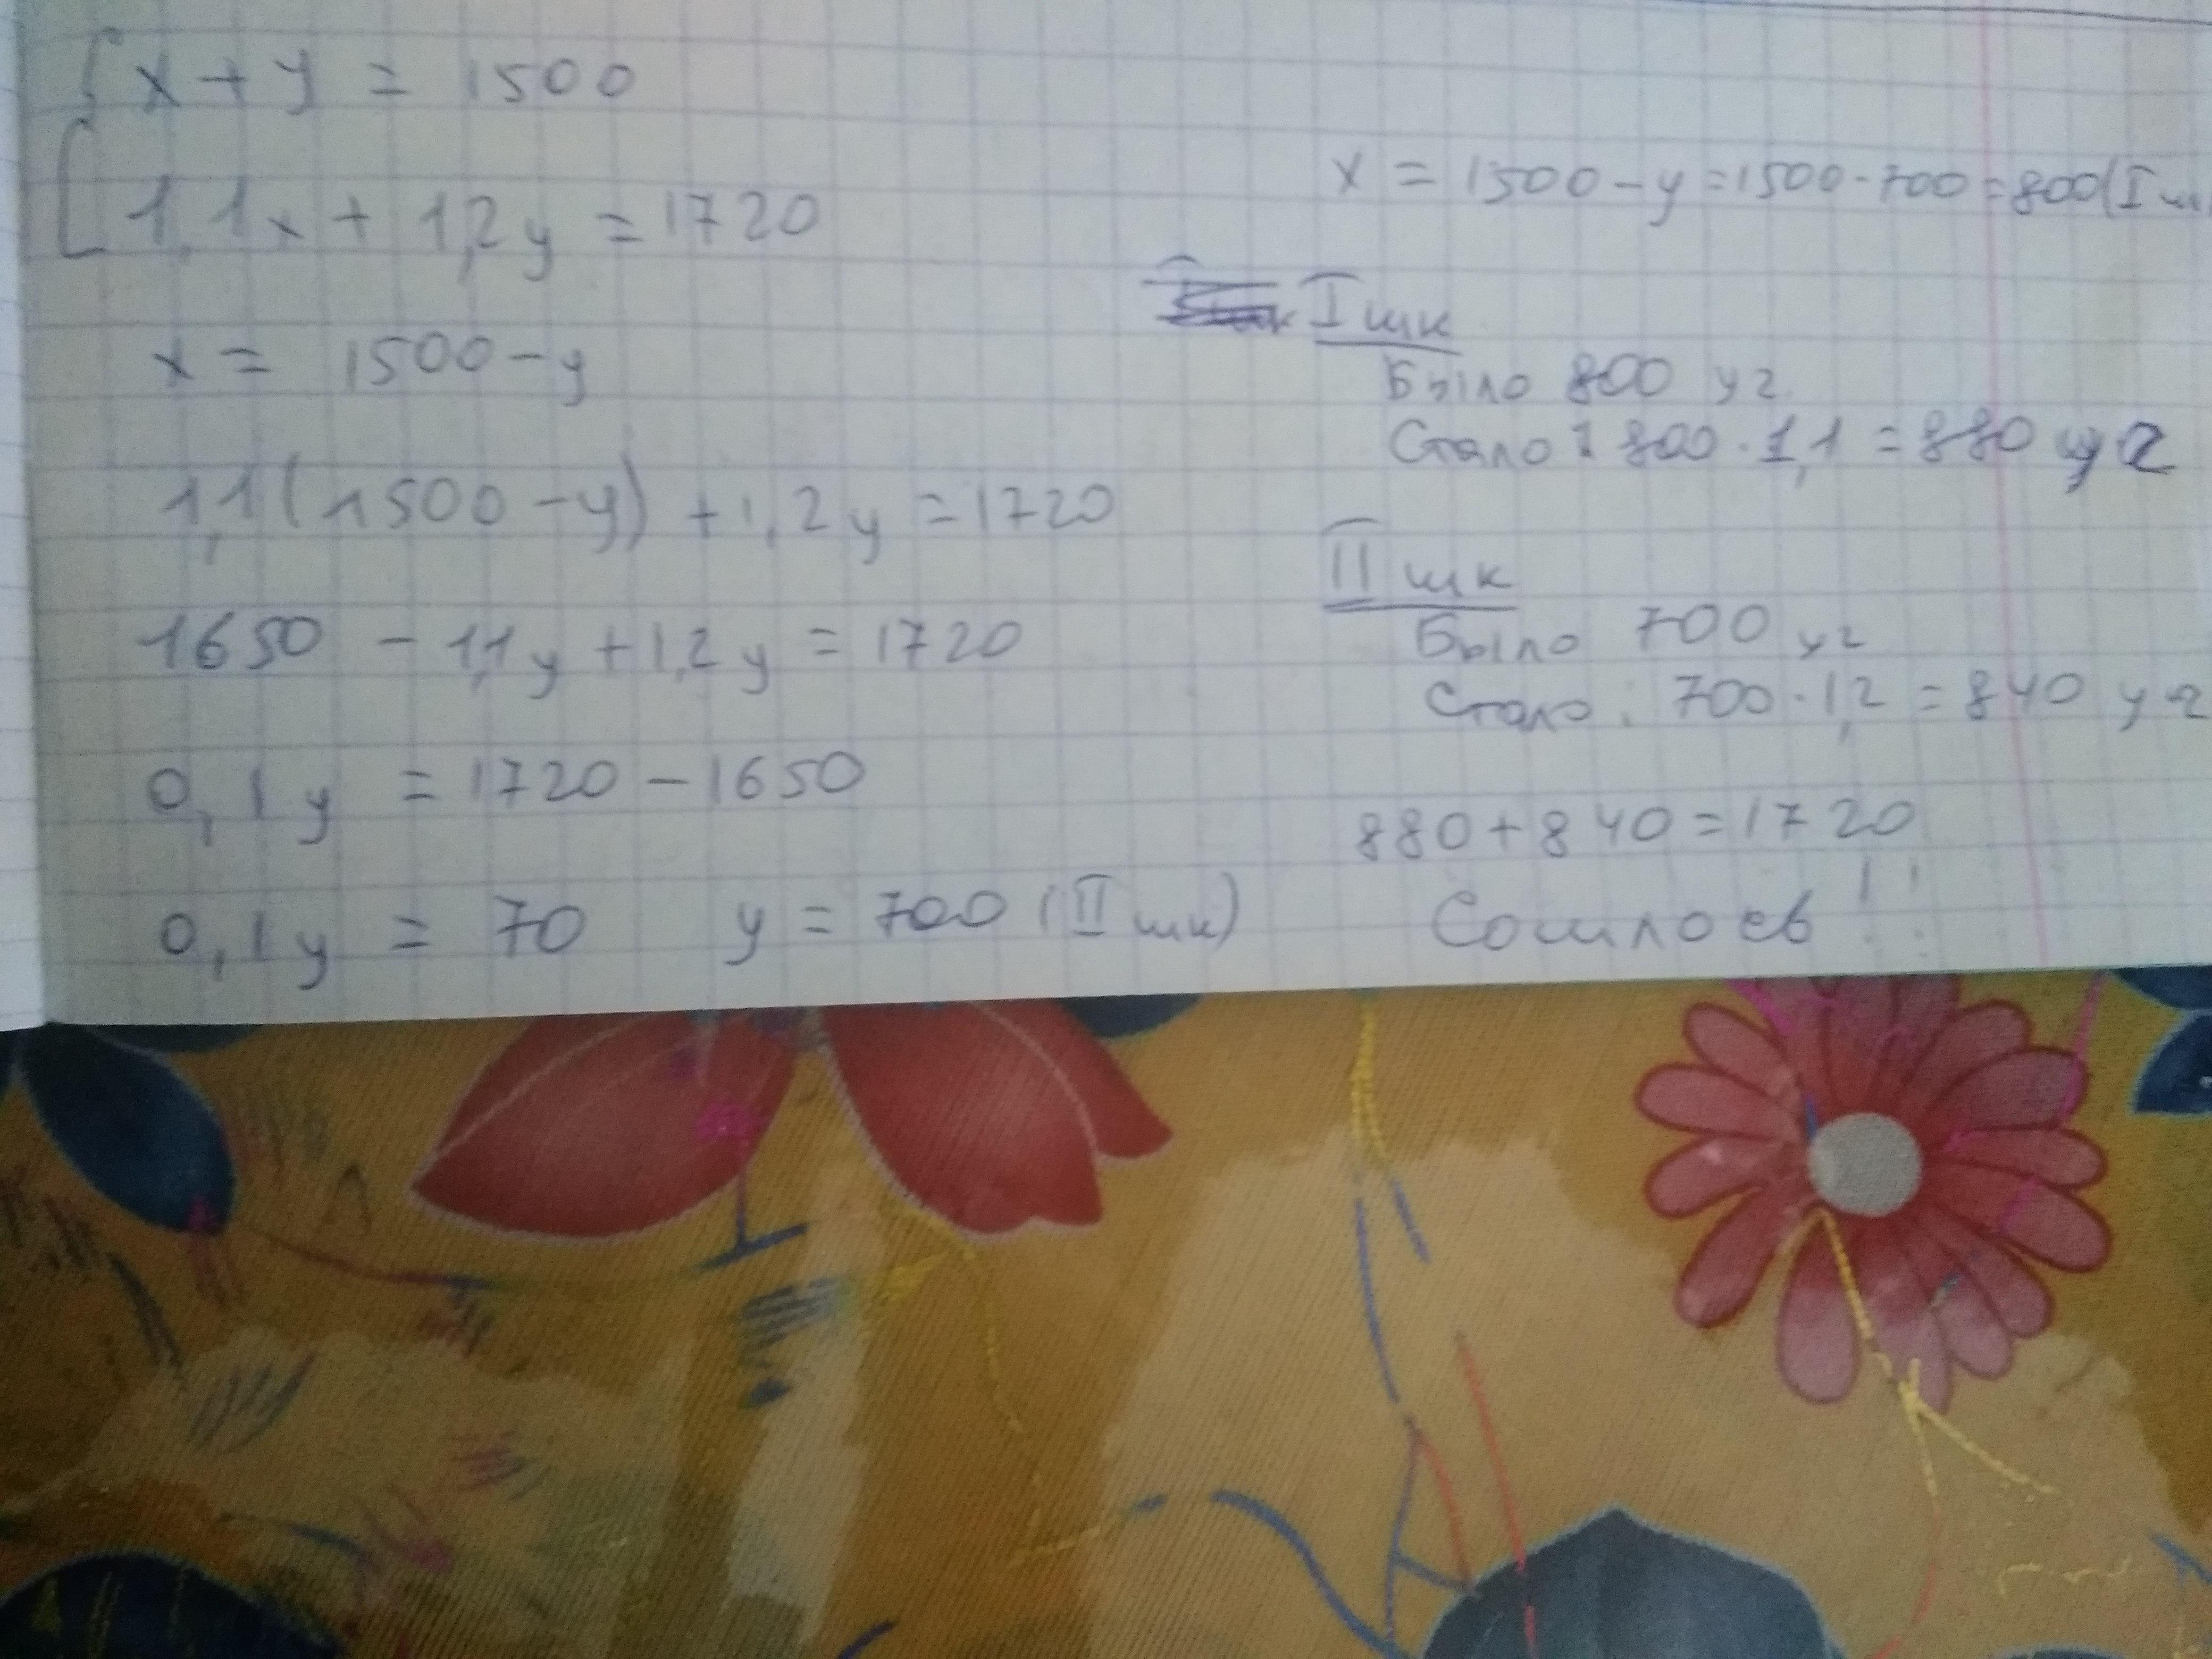 x + y = 1500
1,1x + 1,2y = 1720
x = 1500 - y
1,1(1500 - y) + 1,2y = 1720
1650 - 1,1y + 1,2y = 1720
0,1y = 1720 - 1650
0,1y = 70 y = 700 (II шк)
x = 1500 - y = 1500 - 700 = 800 (I шк
I шк
Было 800 уч
Стало: 800 · 1,1 = 880 уч
II шк
Было 700 уч
Стало: 700 · 1,2 = 840 уч
880 + 840 = 1720
Сошлось!!